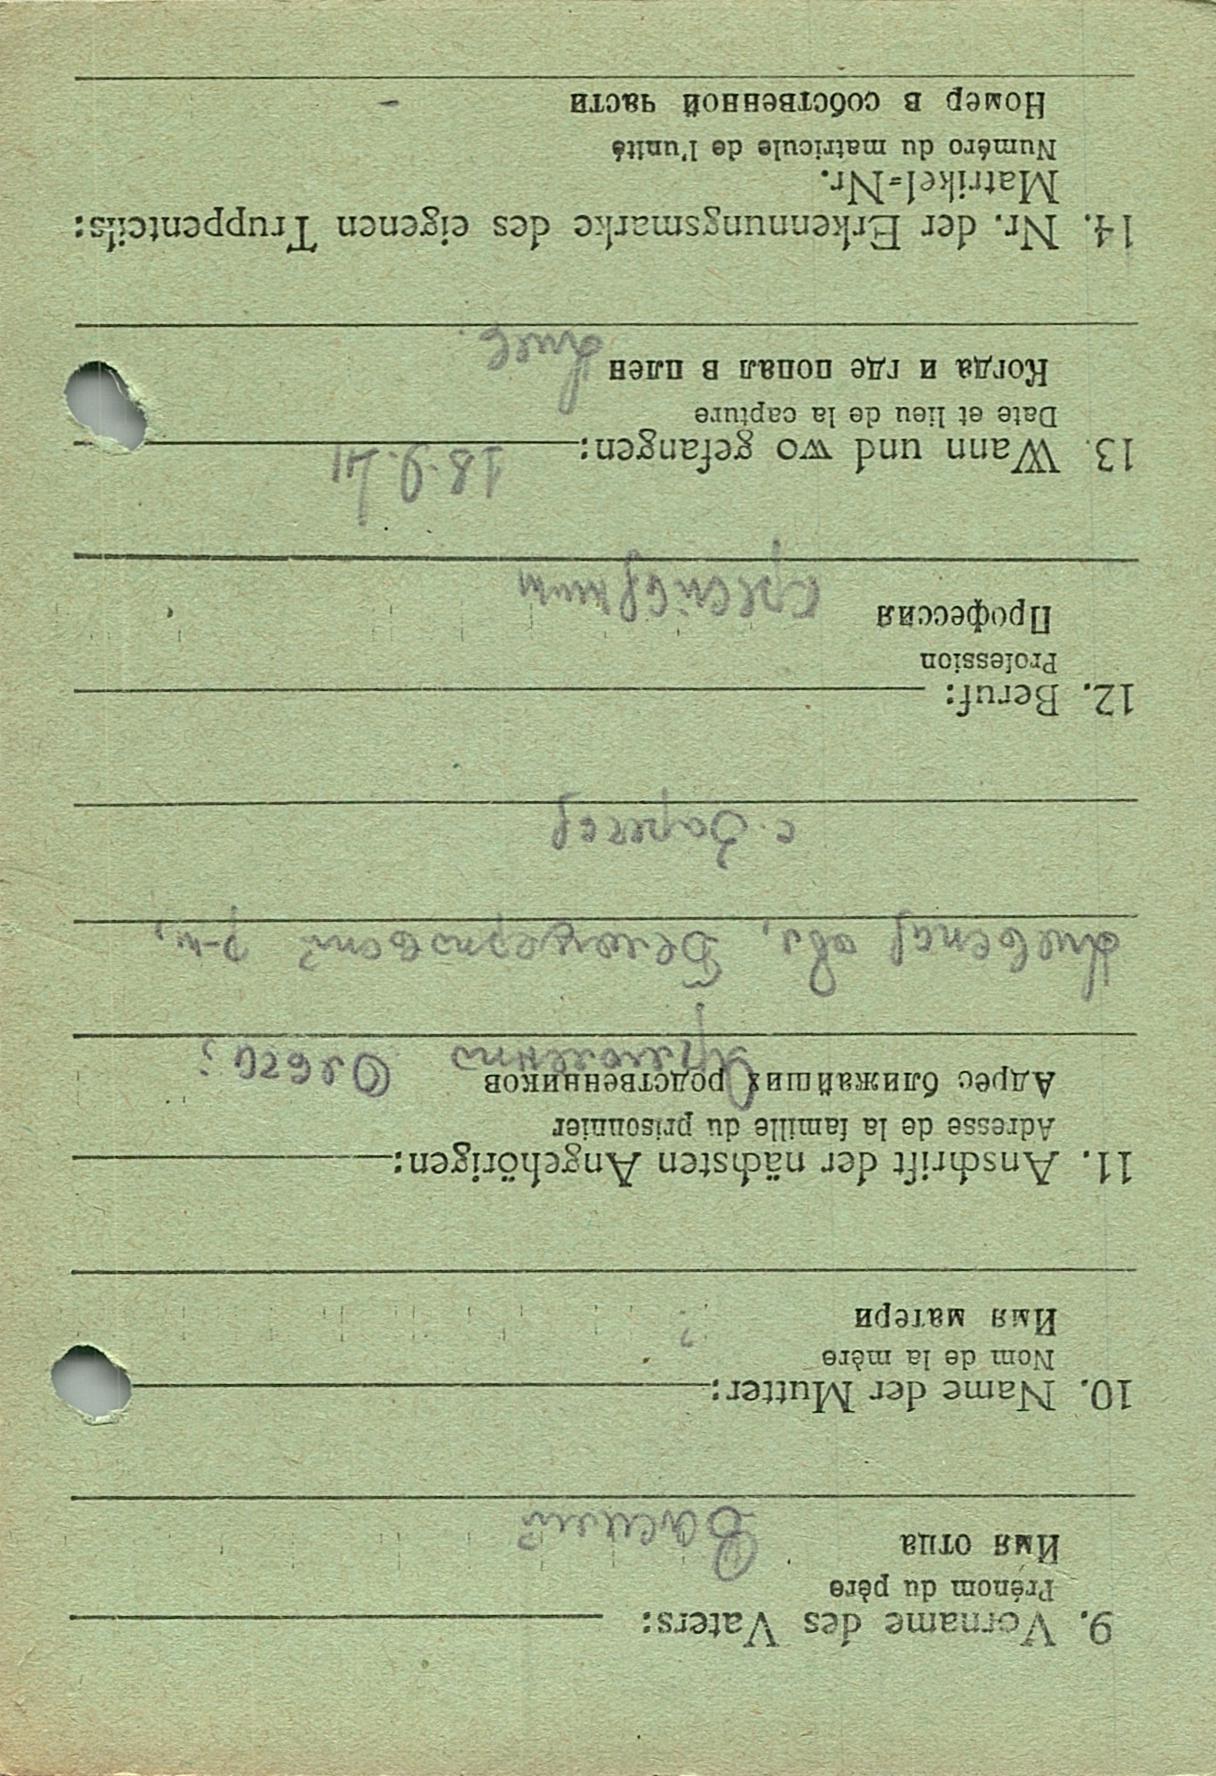 9. Vorname des Vaters:
Prénom du père
Имя отца Василий
10. Name der Mutter:
Nom de la mère
Имя матери ?
11. Anschrift der nächsten Angehörigen:
Adresse de la famille du prisonnier
Адрес ближайших родственников
Ярмоленко Ольга;
Киевская обл, Белоцерковский р-н,
с.
12. Beruf:
Profession
Профессия
13. Wann und wo gefangen:
18.9.41
Date et lieu de la capture
Когда и где попал в плен
Киев.
14. Nr. der Erkennungsmarke des eigenen Truppenteils:
Matrikel=Nr.
Numéro du matricule de l'unité
Номер в собственной части –